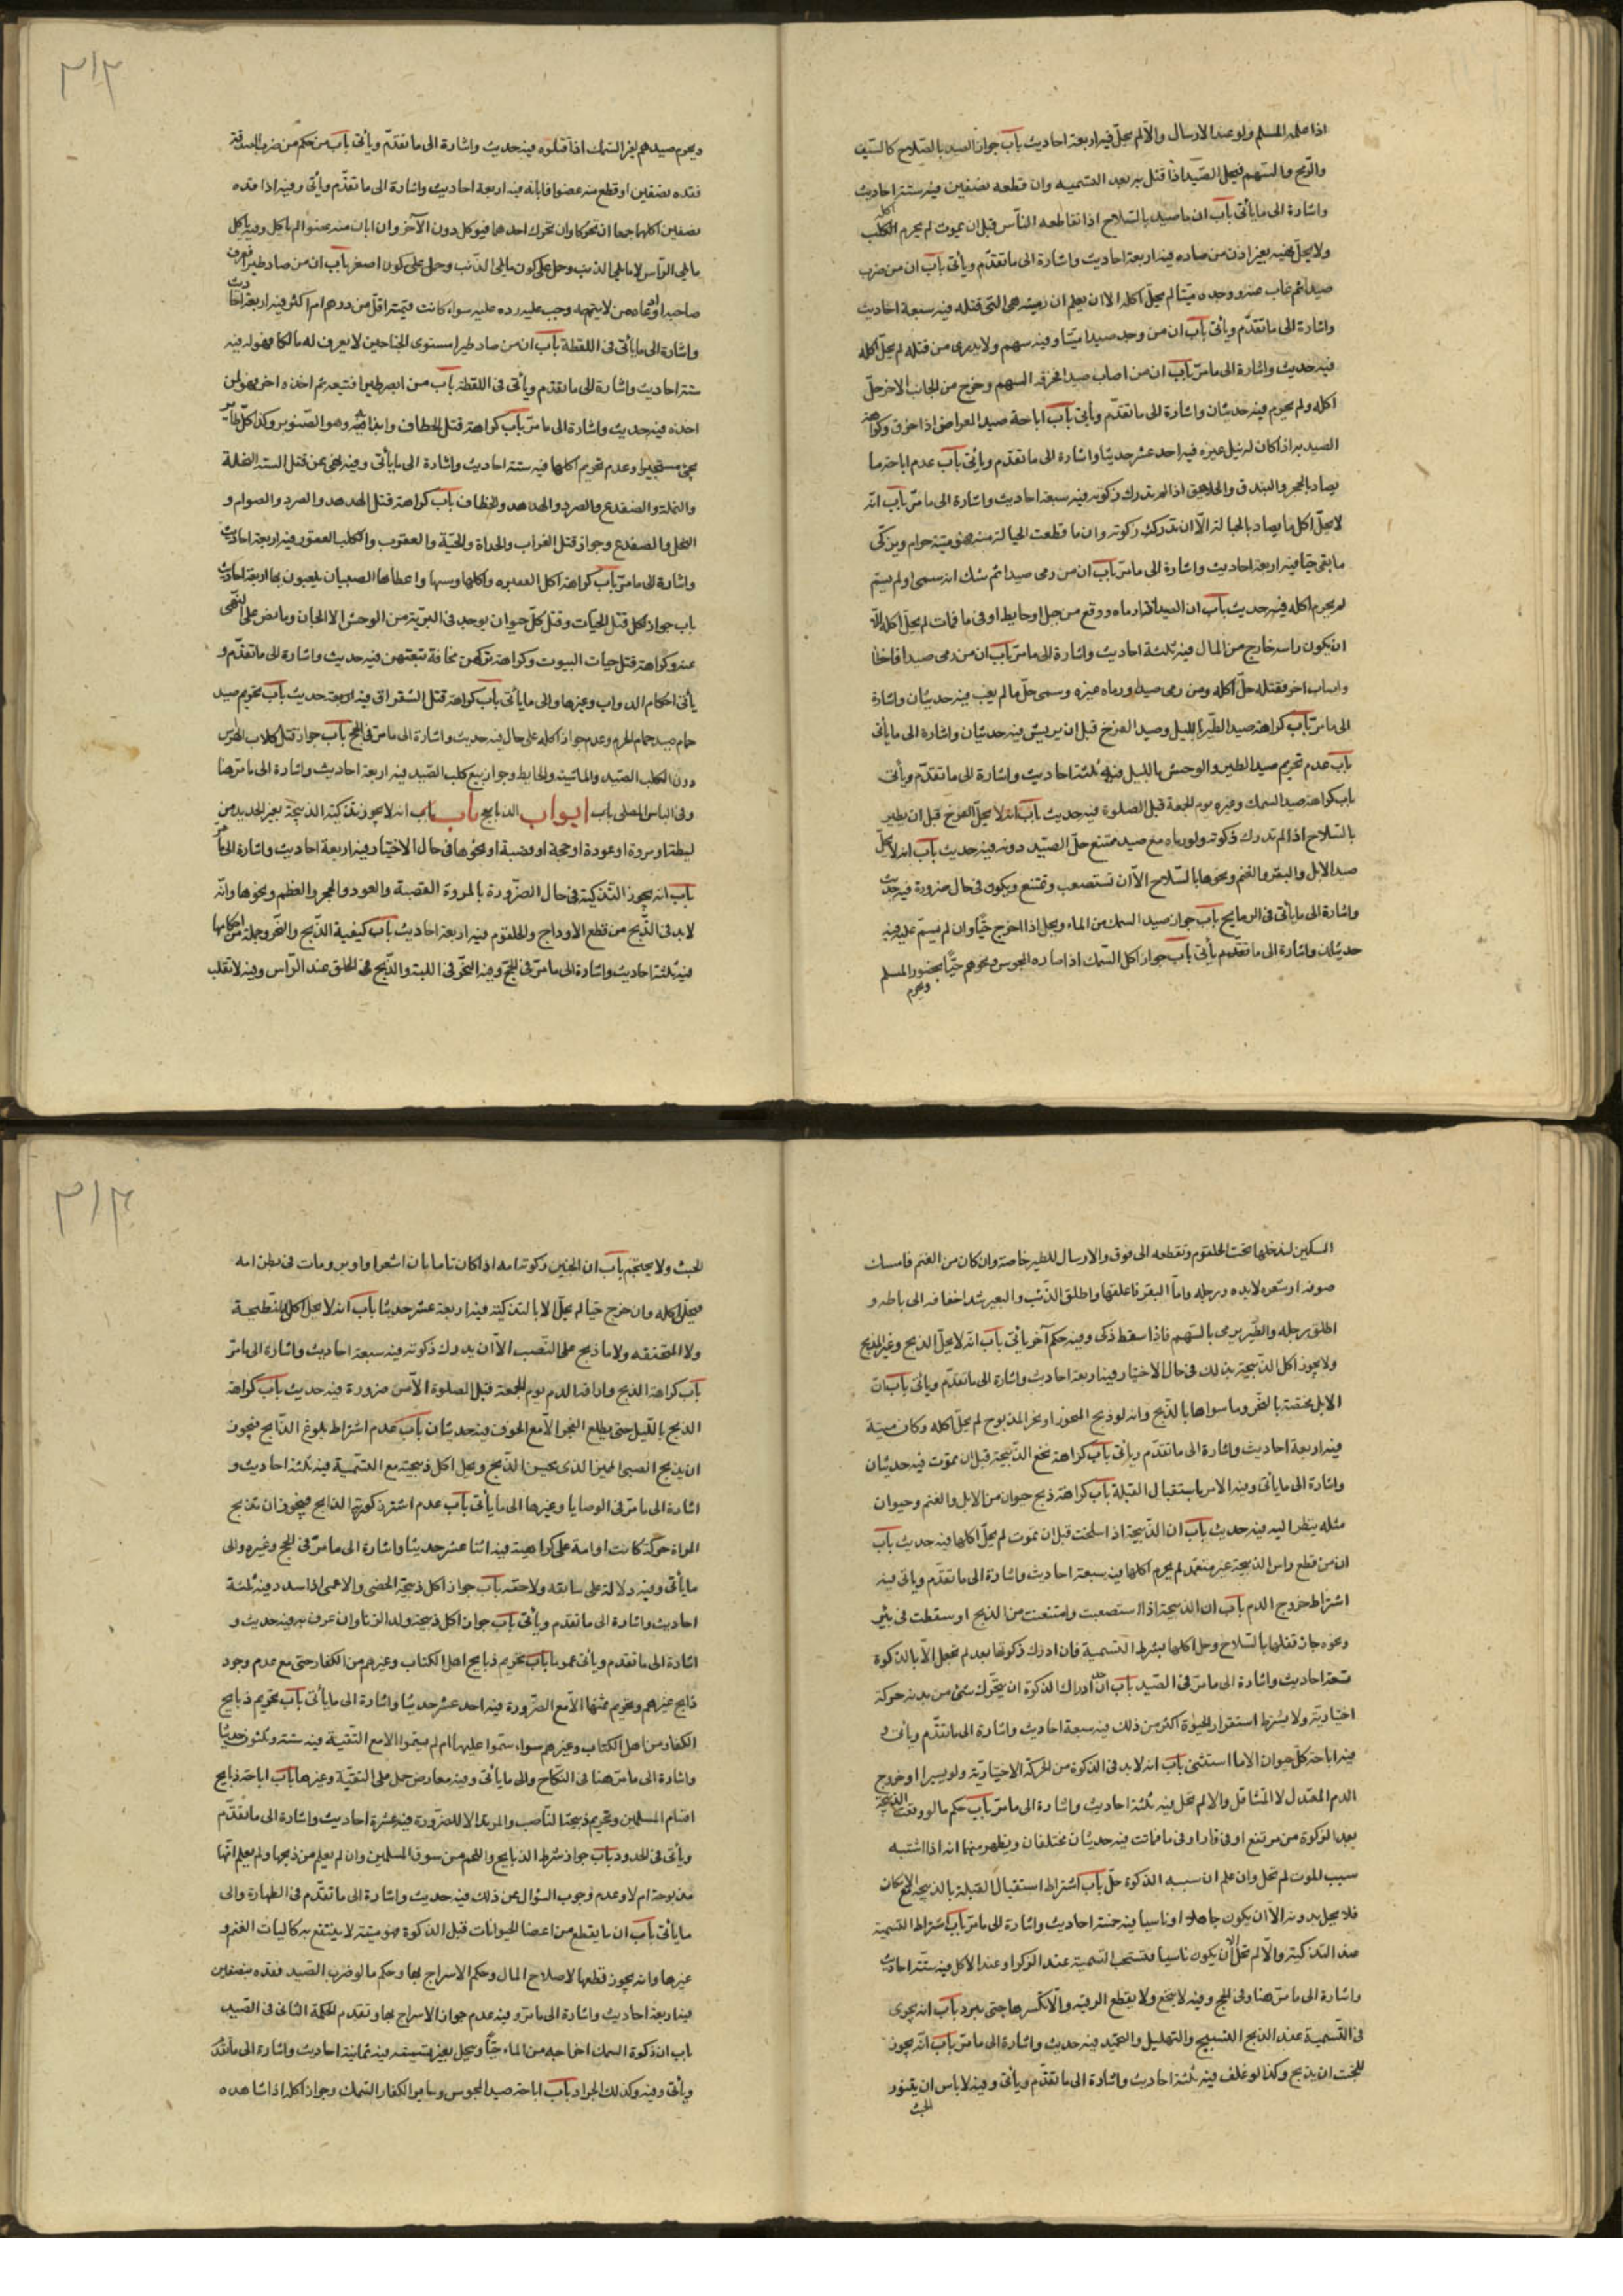 اذا علمه المسلم ولو عند الارسال والا لم يحل فيه اربعة احاديث باب جواز الصيد بالسلاح كالسيف
والرمح والسهم فيحل الصيد اذا قتل به بعد التسميه وان قطعه نصفين فيه ستة احاديث
واشارة الى ما ياتى باب ان ما صيد بالسلاح اذا تقاطعه الناس قبل ان يموت لم يحرم اكله
ولا يحل نهبه بغير اذن من صاده فيه اربعة احاديث واشارة الى ما تقدم وياتى باب ان من ضرب
صيدا ثم غاب عنه ووجده ميتا لم يحل اكله الا ان يعلم ان رميته هى التى قتله فيه سبعة احاديث
واشارة الى ما تقدم وياتى باب ان من وجد صيدا ميتا وفيه سهم ولا يدرى من قتله لم يحل اكله
فيه حديث واشارة الى ما مر باب ان من اصاب صيدا فخرقه السهم وخرج من الجانب الاخر حل
اكله ولم يحرم فيه حديثان واشارة الى ما تقدم وياتى باب اباحة صيد المعراض اذا خرق وكراهة
الصيد به اذا كان له نبل غيره فيه احد عشر حديثا واشارة الى ما تقدم وياتى باب عدم اباحة ما
يصاد بالحجر والبندق والجلاهق اذا لم تدرك ذكوته فيه سبعة احاديث واشارة الى ما مر باب انه
لا يحل اكل ما يصاد بالحبالة الا ان تدرك ذكوته وان ما قطعت الحبالة منه فهو ميتة حرام ويذكى
ما بقى حيا فيه اربعة احاديث واشارة الى ما مر باب ان من رمى صيدا ثم شك انه سمى او لم يسم
لم يحرم اكله فيه حديث باب ان الصيد اذا رماه ووقع من جبل او حايط او فى ماء فمات لم يحل اكله الا
ان يكون راسه خارج من الماء فيه ثلثة احاديث واشارة الى ما مر باب ان من رمى صيدا فاخطا
واصاب اخر فقتله حل اكله ومن رمى صيدا ورماه غيره وسمى حل ما لم يغب فيه حديثان واشارة
الى ما مر باب كراهة صيد الطير بالليل وصيد الفرخ قبل ان يريش فيه حديثان واشارة الى ما ياتى
باب عدم تحريم صيد الطير والوحش بالليل فيه ثلثة احاديث واشارة الى ما تقدم وياتى
باب كراهة صيد السمك وغيره يوم الجمعة قبل الصلوة فيه حديث باب انه لا يحل الفرخ قبل ان يطير
بالسلاح اذا لم تدرك ذكوته ولو رماه مع صيد ممتنع حل الصيد دونه فيه حديث باب انه لا يحل
صيد الابل والبقر والغنم ونحوها بالسلاح الا ان تستصعب وتمتنع ويكون فى حال ضرورة فيه حديث
واشارة الى ما ياتى فى الذبايح باب جواز صيد السمك من الماء ويحل اذا اخرج حيا وان لم يسم عليه فيه
حديثان واشارة الى ما تقدم وياتى باب جواز اكل السمك اذا صاده المجوس ونحوهم حيا بحضور المسلم
ويحرم
٣١٢
ويحرم صيدهم لغير السمك اذا قتلوه فيه حديث واشارة الى ما تقدم وياتى باب من حكم من ضرب الصيد
فقده نصفين او قطع منه عضوا فابانه فيه اربعة احاديث واشارة الى ما تقدم وياتى وفيه اذا قده
نصفين اكلهما جميعا ان تحركا وان تحرك احدهما فيوكل دون الآخر وان ابان منه عضوا لم ياكل وفيه ياكل
ما يلى الراس لا ما يلى الذنب وحمل على كون ما يلى الذنب وحمل على كون اصغر باب ان من صاد طيرا فعرف
صاحبه او ادعاه من لا يتهمه وجب عليه رده عليه سواء كانت قيمته اقل من درهم ام اكثر فيه اربعة احاديث
واشارة الى ما ياتى فى اللقطة باب ان من صاد طيرا مستوى الجناحين لا يعرف له مالكا فهو له فيه
ستة احاديث واشارة الى ما تقدم وياتى فى اللقطة باب من ابصر طيرا فتبعه ثم اخذه اخر فهو لمن
اخذه فيه حديث واشارة الى ما مر باب كراهة قتل الخطاف وايذائه وهو الصنونو وكذا كل طاير
يجئ مستجيرا وعدم تحريم اكلها فيه ستة احاديث واشارة الى ما ياتى وفيه نهى عن قتل الستة النحلة
والنملة والضفدع والصرد والهدهد والخطاف باب كراهة قتل الهدهد والصرد والصوام و
النحل والضفدع وجواز قتل الغراب والحداة والحية والعقرب والكلب العقور فيه اربعة احاديث
واشارة الى ما مر باب كراهة اكل القنبره واكلها وسبها واعطاءها الصبيان يلعبون بها اربعة احاديث
باب جواز كل قتل الحيات وقتل كل حيوان يوجد فى البرية من الوحش الا الجان وما نص على النهى
عنه وكراهة قتل حيات البيوت وكراهة تركهن مخافة تبعتهن فيه حديث واشارة الى ما تقدم و
ياتى احكام الدواب وغيرها والى ما ياتى باب كراهة قتل الشقراق فيه اربعة حديث باب تحريم صيد
حمام صيد حمام الحرم وعدم جواز اكله على حال فيه حديث واشارة الى ما مر فى الحج باب جواز قتل كلاب الهراش
دون الكلب الصيد والماشية والحايط وجواز بيع كلب الصيد فيه اربعة احاديث واشارة الى ما مر هنا
وفى لباس المصلى باب ابواب الذبايح باب باب انه لا يجوز تذكية الذبيحة بغير الحديد من
ليطة او مروة او عودة او حجة او قصبة او نحوها فى حال الاختيار فيه اربعة احاديث واشارة الى ما مر
باب انه يجوز التذكية فى حال الضرورة بالمروة القصبة والعود والحجر والعظم ونحوها وانه
لا بد فى الذبح من قطع الاوداج والحلقوم فيه اربعة احاديث باب كيفية الذبح والنحر وجملة من احكامها
فيه ثلثة احاديث واشارة الى ما مر فى الحج وفيه النحر فى اللبة والذبح فى الحلق عند الراس وفيه لا تقلب
السكين لتدخلها تحت الحلقوم وتقطعه الى فوق والارسال للطير خاصة وان كان من الغنم فامسك
صوفه او شعره لا يده ورجله واما البقر فاعلقها واطلق الذنب والبعير شد اخفافه الى باطه و
اطلق رجله والطير يرمى بالسهم فاذا سقط ذكى وفيه حكم آخر ياتى باب انه لا يحل الذبح وغير المذبح
ولا يجوز اكل الذبيحة بذلك فى حال الاختيار فيه اربعة احاديث واشارة الى ما تقدم وياتى باب ان
الابل مختصة بالنحر وما سواها بالذبح وانه لو ذبح المنحور او نحر المذبوح لم يحل اكله وكان ميتة
فيه اربعة احاديث واشارة الى ما تقدم وياتى باب كراهة نخع الذبيحة قبل ان تموت فيه حديثان
واشارة الى ما ياتى وفيه الامر باستقبال القبلة باب كراهة ذبح حيوان من الابل والغنم وحيوان
مثله ينظر اليه فيه حديث باب ان الذبيحة اذا سلخت قبل ان تموت لم يحل اكلها فيه حديث باب
ان من قطع راس الذبيحة غير متعمد لم يحرم اكلها فيه سبعة احاديث واشارة الى ما تقدم وياتى فيه
اشتراط خروج الدم باب ان الذبيحة اذا استصعبت وامتنعت من الذبح او سقطت فى بئر
ونحوه جاز قتلها بالسلاح وحل اكلها بشرط التسمية فان ادرك ذكوتها بعد لم تحل الا بالذكوة
تسعة احاديث واشارة الى ما مر فى الصيد باب ان حد ادراك الذكوة ان يتحرك شئ من بدنه حركة
اختيارية ولا يشترط استقرار الحيوة اكثر من ذلك فيه سبعة احاديث واشارة الى ما تقدم وياتى و
فيه اباحة كل حيوان الا ما استثنى باب انه لا بد فى الذكوة من الحركة الاختيارية ولو يسيرا او خروج
الدم المعتدل لا المتثاقل والا لم تحل فيه ثلثة احاديث واشارة الى ما مر باب حكم ما لو وقعت الذبيحة
بعد الذكوة من مرتفع او فى نار او فى ماء فماتت فيه حديثان مختلفان ويظهر منهما انه اذا اشتبه
سبب الموت لم تحل وان علم ان سببه الذكوة حل باب اشتراط استقبال القبلة بالذبيحة مع الامكان
فلا يحل بدونه الا ان يكون جاهلا او ناسيا فيه خمسة احاديث واشارة الى ما مر باب اشتراط التسمية
عند التذكية والا لم تحل الا ان يكون ناسيا فتستحب التسمية عند الذكر او عند الاكل فيه ستة احاديث
واشارة الى ما مر هنا وفى الحج وفيه لا ينخع ولا يقطع الرقبة والا تكسرها حتى تبرد باب انه يجزى
فى التسمية عند الذبح التسبيح والتهليل والتحميد فيه حديث واشارة الى ما مر باب انه يجوز
للجنب ان يذبح وكذا لو غلف فيه ثلثة احاديث واشارة الى ما تقدم وياتى وفيه لا باس ان يتنور
الجنب
٣١٣
الجنب ولا يحتجم باب ان الجنين ذكوته امه اذا كان تاما بان اشعر او اوبر ومات فى بطن امه
فيحل اكله وان خرج حيا لم يحل الا بالتذكية فيه اربعة عشر حديثا باب انه لا يحل اكل النطيحة
ولا المنخنقه ولا ما ذبح على النصب الا ان يدرك ذكوته فيه سبعة احاديث واشارة الى ما مر
باب كراهة الذبح واراقة الدم يوم الجمعة قبل الصلوة الا من ضرورة فيه حديث باب كراهة
الذبح بالليل حتى يطلع الفجر الا مع الخوف فيه حديثان باب عدم اشتراط بلوغ الذابح فيجوز
ان يذبح الصبى المميز الذى يحسن الذبح ويحل اكل ذبيحته مع التسمية فيه ثلثة احاديث و
اشارة الى ما مر فى الوصايا وغيرها الى ما ياتى باب عدم اشتراط ذكورية الذابح فيجوز ان تذبح
المراة حرة كانت او امة على كراهية فيه اثنا عشر حديثا واشارة الى ما مر فى الحج وغيره والى
ما ياتى وفيه دلالة على سابقه ولاحقه باب جواز اكل ذبيحة الخصى والاعمى اذا سدد فيه ثلثة
احاديث واشارة الى ما تقدم وياتى باب جواز اكل ذبيحة ولد الزنا وان عرف به فيه حديث و
اشارة الى ما تقدم وياتى عموما باب تحريم ذبايح اهل الكتاب وغيرهم من الكفار حتى مع عدم وجود
ذابح غيرهم وتحريم ثمنها الا مع الضرورة فيه احد عشر حديثا واشارة الى ما ياتى باب تحريم ذبايح
الكفار من اهل الكتاب وغيرهم سواء سموا عليها ام لم يسموا الا مع التقية فيه ستة وثلثون حديثا
واشارة الى ما مر هنا فى النكاح والى ما ياتى وفيه معارض حمل على التقية وغيرها باب اباحة ذبايح
اقسام المسلمين وتحريم ذبيحة الناصب والمرتد الا للضرورة فيه عشرة احاديث واشارة الى ما تقدم
وياتى فى الحدود باب جواز شراء الذبايح واللحم من سوق المسلمين وان لم يعلم من ذبحها ولم يعلم انها
مذبوحة ام لا وعدم وجوب السؤال عن ذلك فيه حديث واشارة الى ما تقدم فى الطهارة والى
ما ياتى باب ان ما يقطع من اعضا الحيوانات قبل الذكوة فهو ميتة لا ينتفع به كاليات الغنم و
غيرها وانه يجوز قطعها لاصلاح المال وحكم الاسراج بها وحكم ما لو ضرب الصيد فقده نصفين
فيه اربعة احاديث واشارة الى ما مر وفيه عدم جواز الاسراج بها وتقدم الحكمة الثانى فى الصيد
باب ان ذكوة السمك اخراجه من الماء حيا ويحل بغير تسميته فيه ثمانية احاديث واشارة الى ما تقدم
وياتى وفيه وكذلك الجراد باب اباحة صيد المجوس وساير الكفار السمك وجواز اكله اذا شاهده